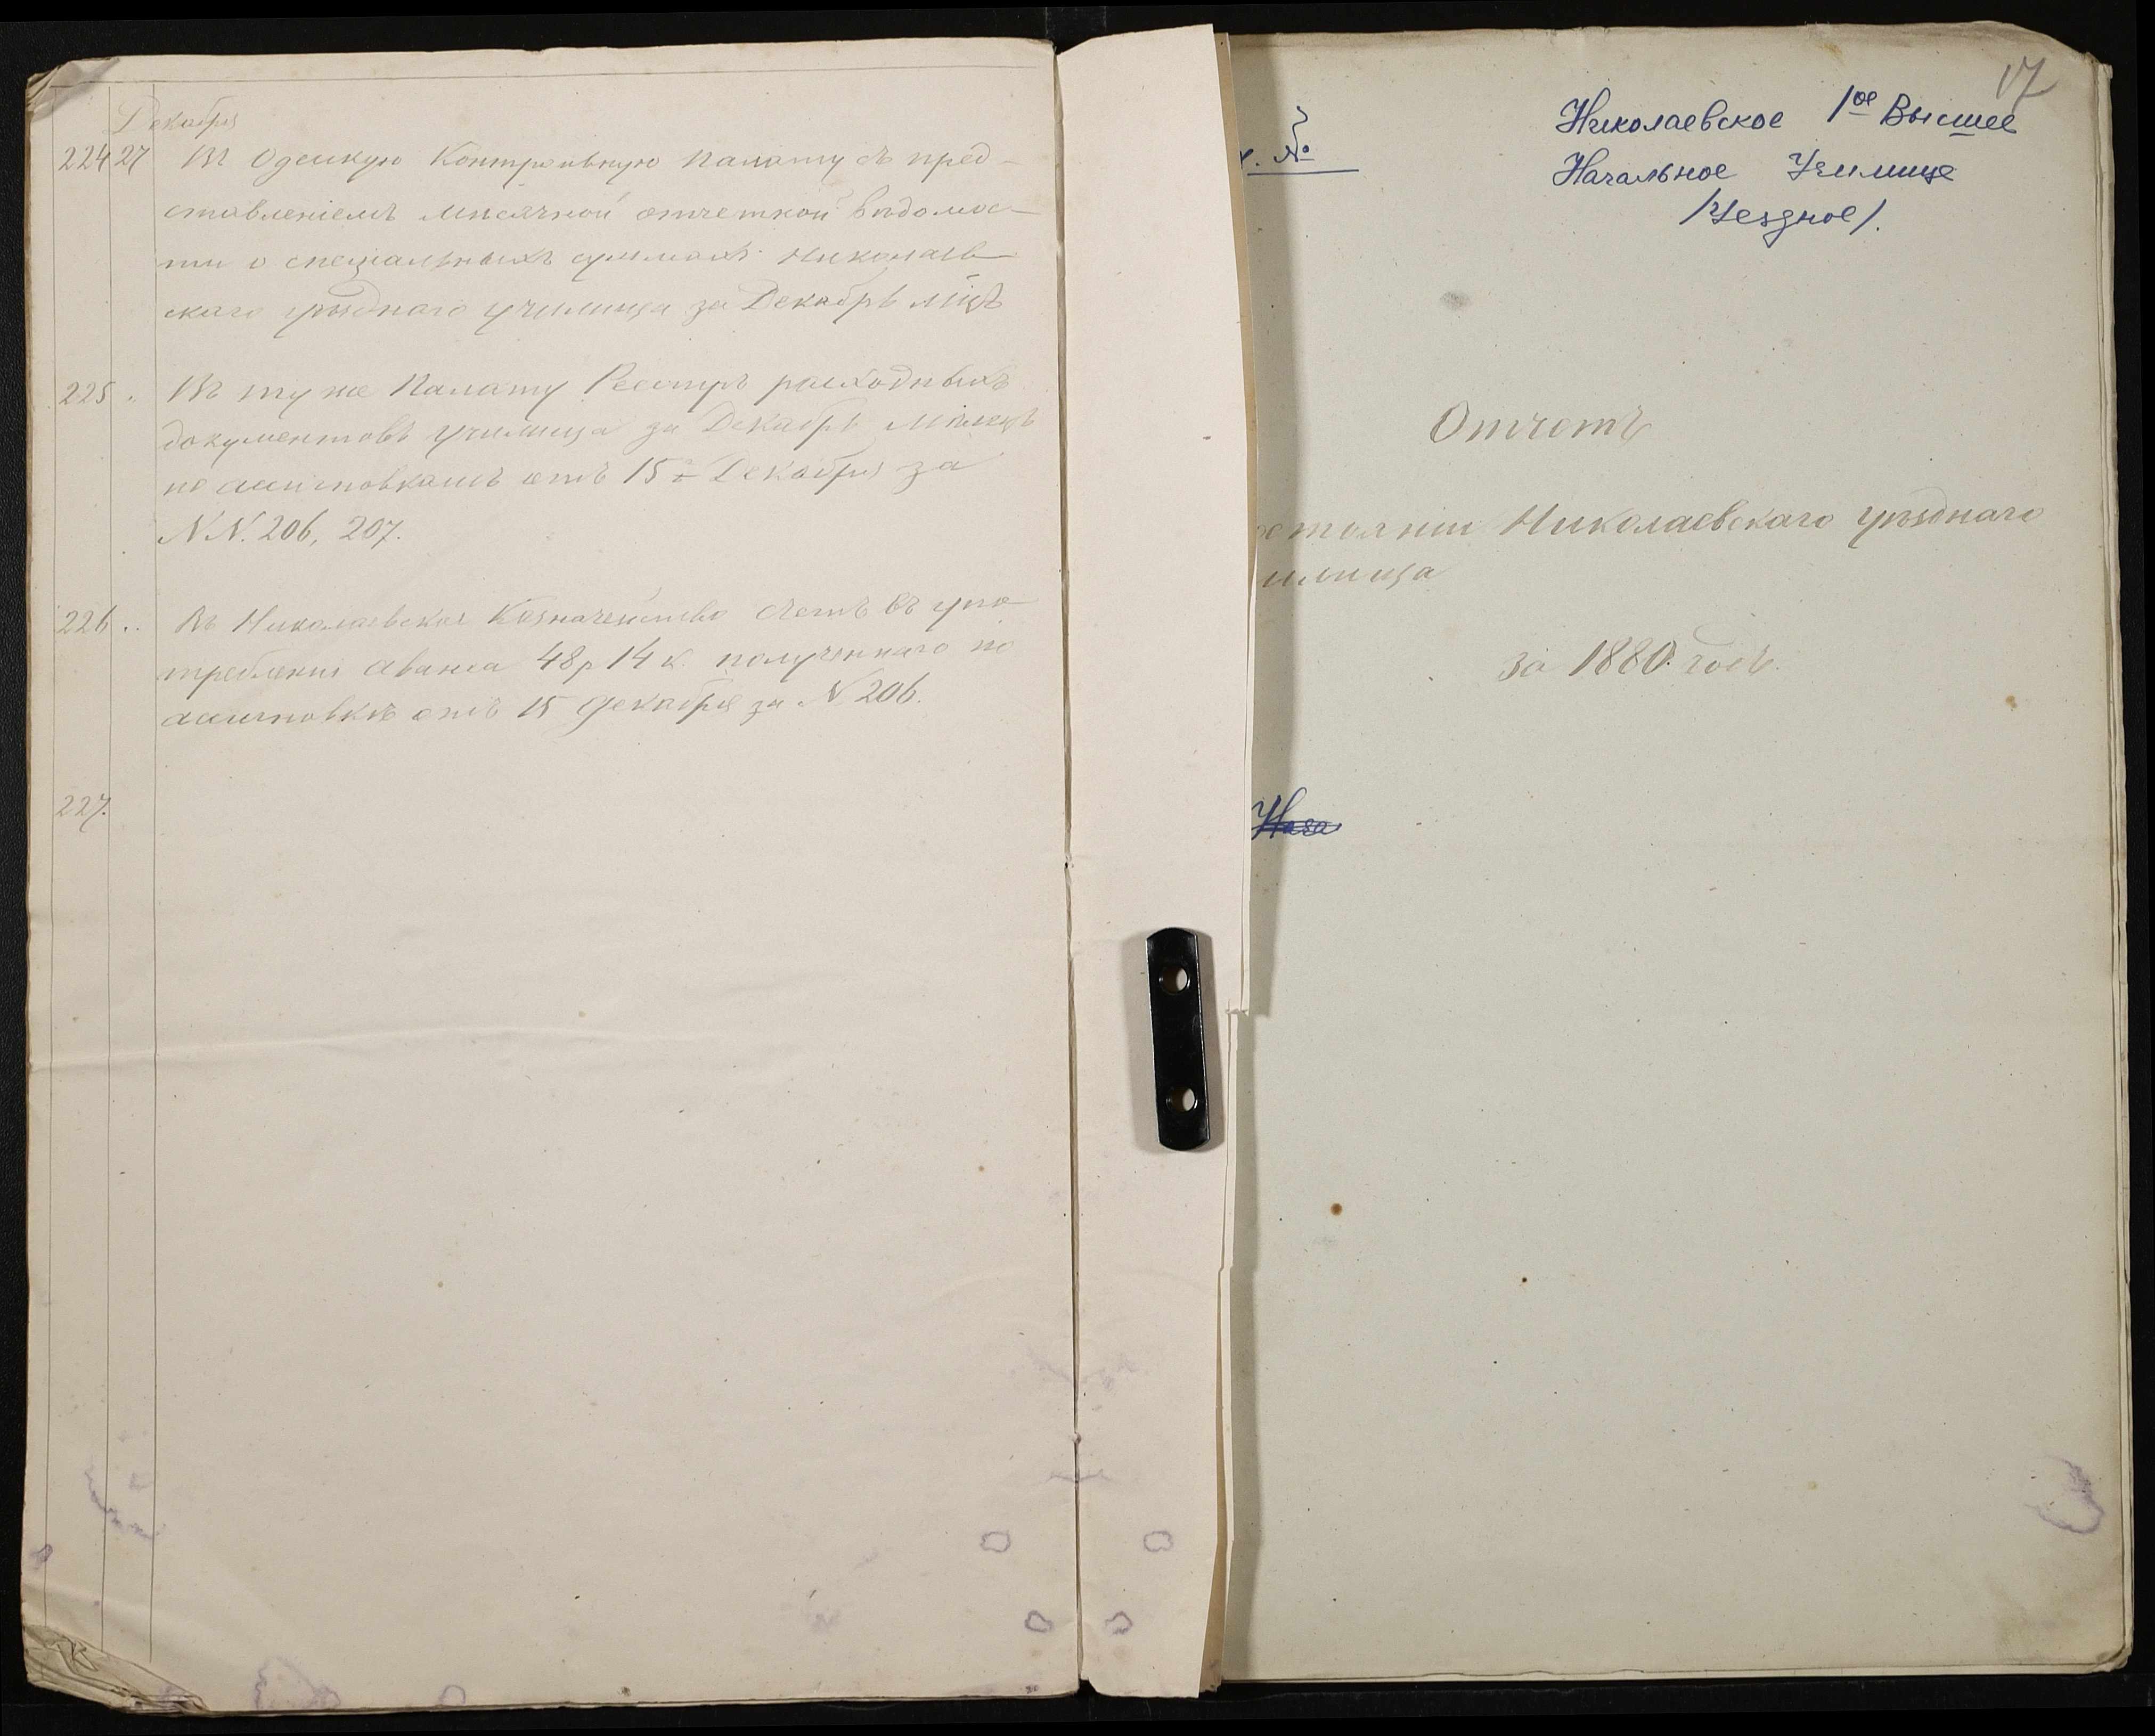 Декабря
224 27 Въ Одескую Контрольную Палату съ пред-
ставленіемъ мѣсячной отчетной вѣдомос-
ти о спеціальныхъ суммахъ Николаев-
скаго уѣзднаго училища за Декабрь м҃цъ
225 " Въ ту же Палату Реестръ расходныхъ
документовъ училища за Декабрь мѣсяцъ
по ассигновкамъ отъ 15 Декабря за
NN. 206, 207.
226 " Въ Николаевское Казначейство счетъ въ упо-
требленіи аванса 48 р 14 к. полученнаго по
ассигновкѣ отъ 15 Декабря за N 206.
227.
17
№
Николаевское 1ое Высшее
Начальное Училище
/Уездное/.
Отчетъ
остояніи Николаевскаго уѣзднаго
илища
за 1880. годъ.
Нача